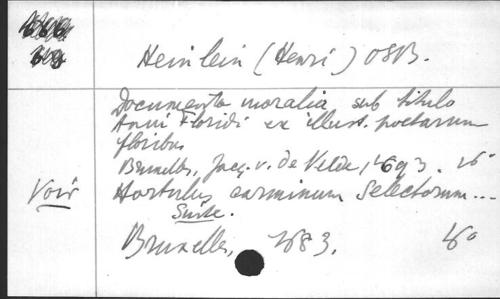 Heinlein (Henri) OSB.
Documenta moralia sub titulo
Anni Floridi ex illust. poetarum
floribus
Bruxelles, Jacq. v. de Velde, 1693. 16°
Voir Hortulus carminum selectorum...
Suite.
Bruxelles, 1683. 16°